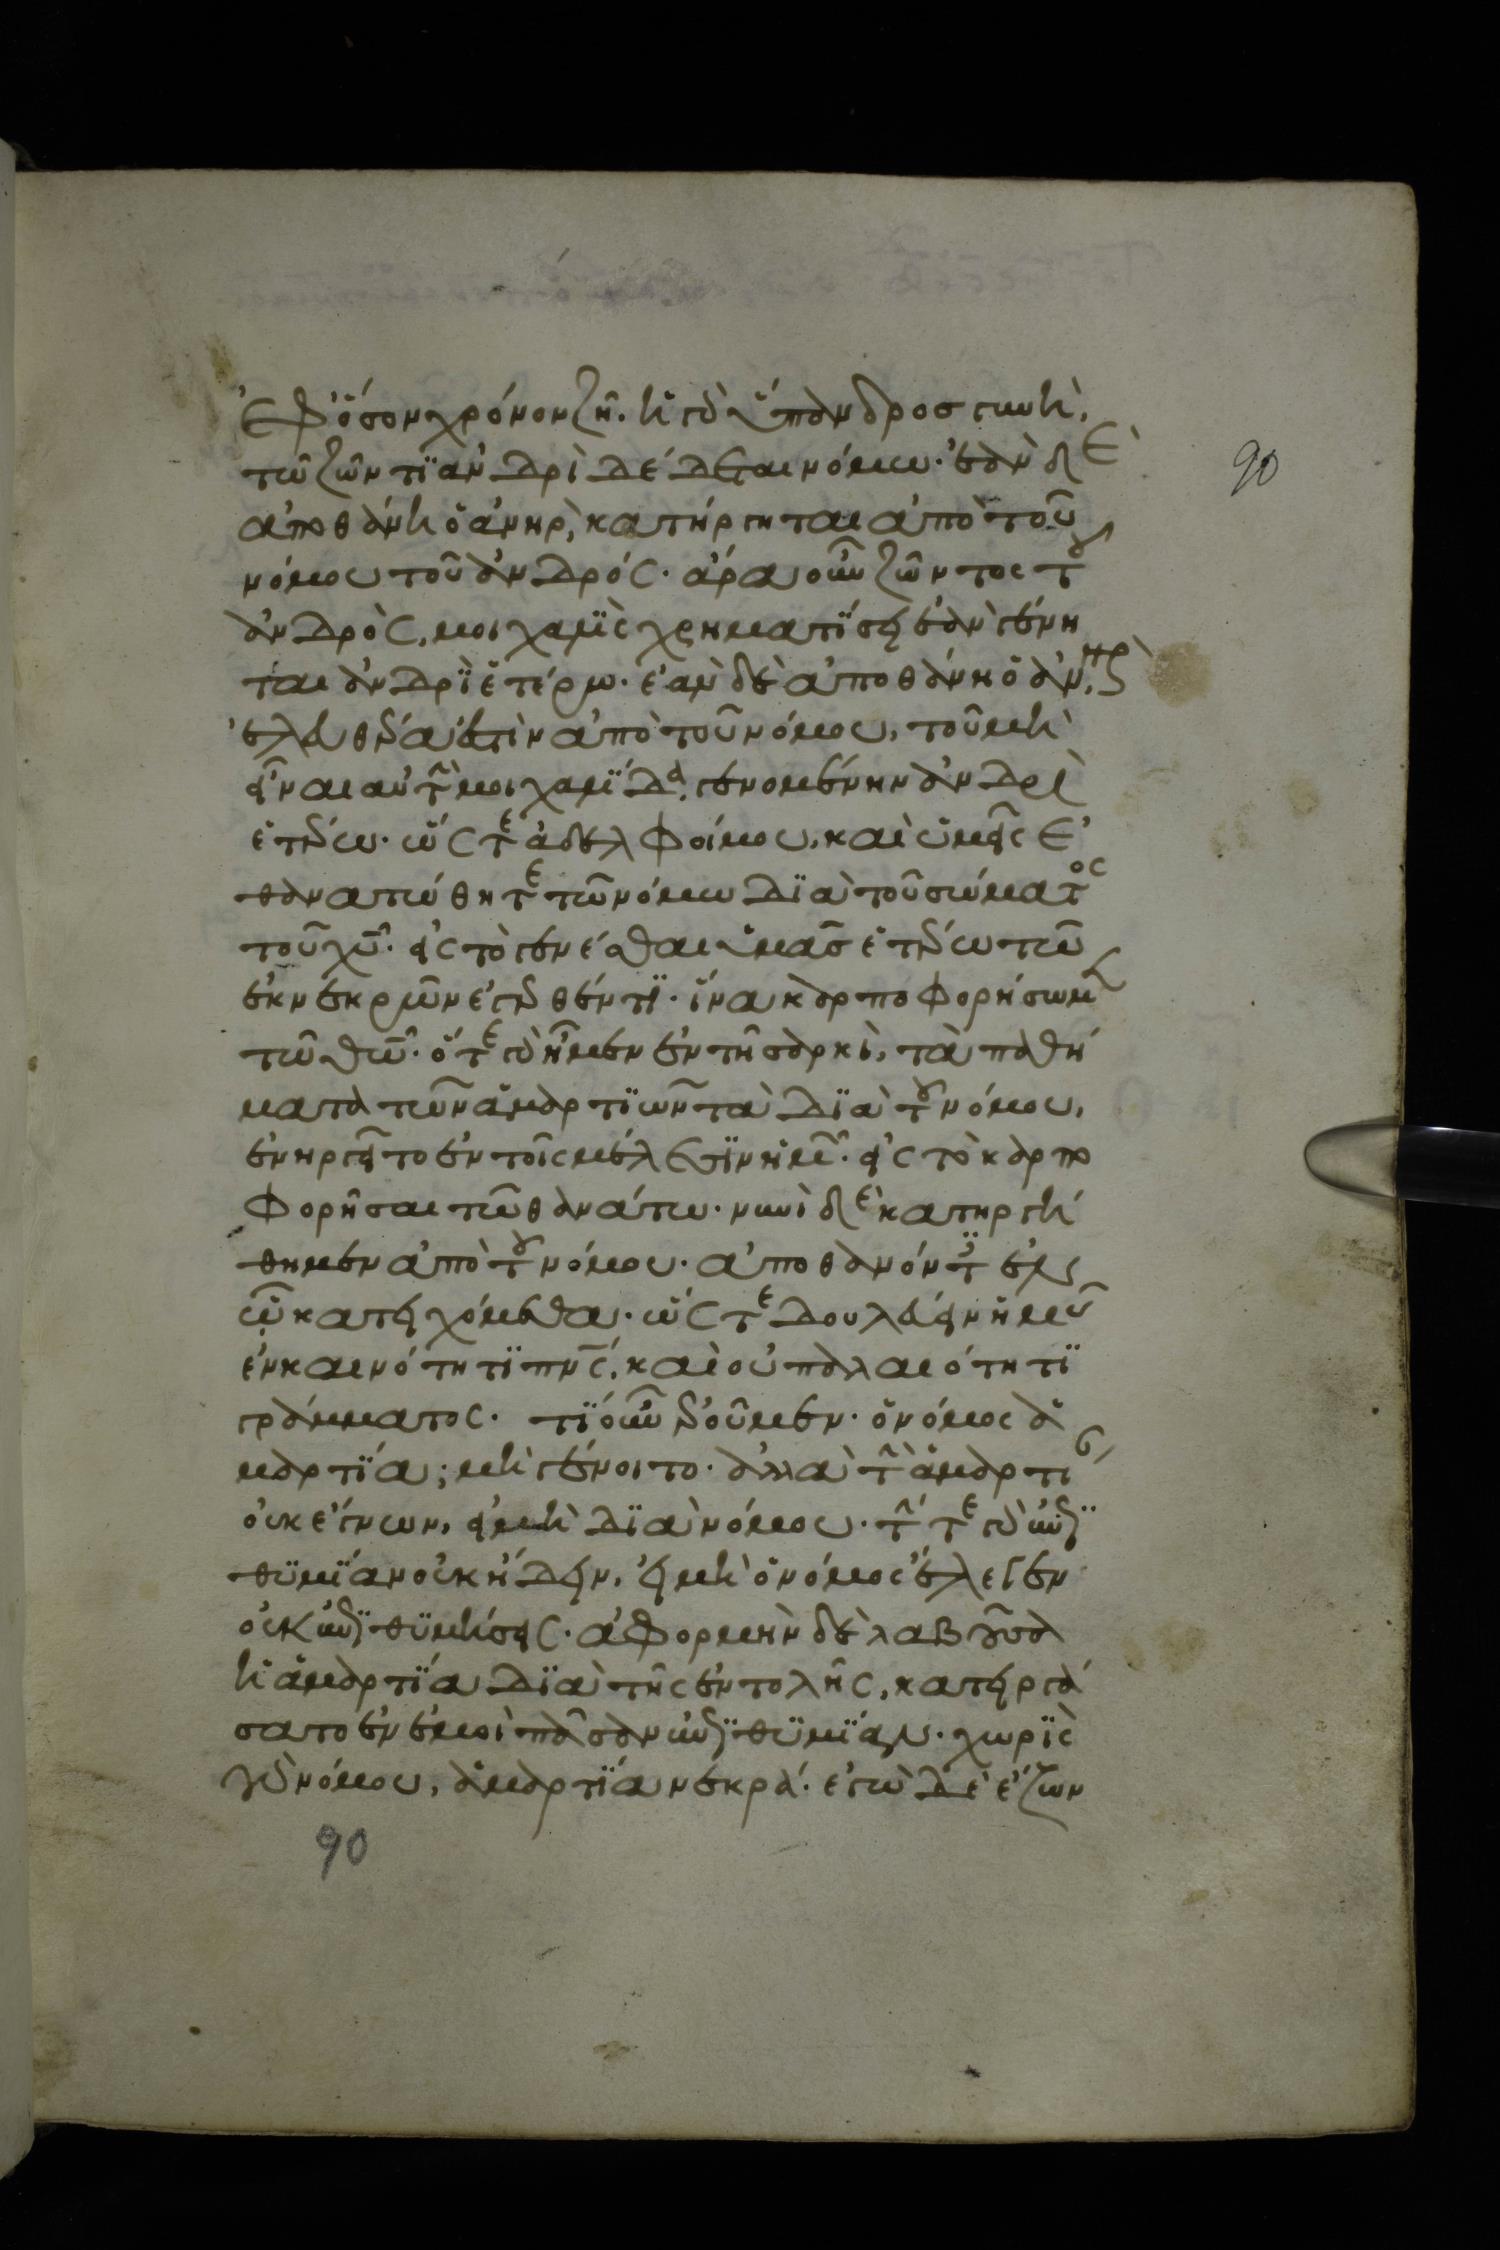 ἐφόσον χρόνον ζῆ. ἡ γὰρ ὕπανδρος γυνὴ,
τῶ ζῶντϊ ἀνδρὶ δέδεται νόμω· ἐὰν δὲ
ἀποθάνη ὁ ἀνὴρ, κατήργηται ἀπὸ τοῦ
νόμου τοῦ ἀνδρός. ἄρα οὖν ζῶντος τοῦ
ἀνδρὸς, μοιχαλῒς χρηματίσει ἐὰν γένη
ται ἀνδρῒ ἑτέρω. ἐὰν δὲ ἀποθάνη ὁ ἀνὴρ,
ἐλευθέρα ἐστὶν ἀπὸ τοῦ νόμου, τοῦ μὴ
εἶναι αὐτὴν μοιχαλΐδα, γενομένην ἀνδρὶ
ἑτέρω. ὥστε ἀδελφοί μου, καὶ ὑμεῖς ἐ
θανατώθητε τῶ νόμω δϊὰ τοῦ σώματος
τοῦ χυ. εἰς τὸ γενέσθαι ὑμᾶς ἑτέρω τῶ
ἐκ νεκρῶν ἐγερθέντϊ. ἵνα καρποφορήσωμεν
τῶ θω. ὅτε γὰρ ἦμεν ἐν τῆ σαρκὶ, τὰ παθή
ματα τῶν ἁμαρτϊῶν τὰ δϊὰ τοῦ νόμου,
ἐνηργεῖτο ἐν τοῖς μέλεσϊν ἡμῶν. εἰς τὸ καρπο
φορῆσαι τῶ θανάτω. νυνὶ δὲ κατηργή
θημεν ἀπὸ τοῦ νόμου. ἀποθανόντες ἐν
ὧ κατειχόμεθα. ὥστε δουλεύειν ἡμᾶς
ἐν καινότητϊ πνς, καὶ οὐ παλαιότητϊ
γράμματος. τΐ οὖν ἐροῦμεν. ὁ νόμος ἁ
μαρτΐα; μὴ γένοιτο. ἀλλὰ τὴν ἁμαρτίαν
οὐκ ἔγνων, εἰ μὴ δϊὰ νόμου. τήν τε γὰρ ἐπϊ
θϋμΐαν οὐκ ἤδειν, εἰ μὴ ὁ νόμος ἔλεγεν
οὐκ ἐπϊθϋμήσεις. ἀφορμὴν δὲ λαβοῦσα
ἡ ἁμαρτΐα δϊὰ τῆς ἐντολῆς, κατειργά
σατο ἐν ἐμοὶ πᾶσαν ἐπϊθϋμΐαν. χωρῒς
γὰρ νόμου, ἁμαρτΐα νεκρά. ἐγὼ δὲ ἔζων
90
90